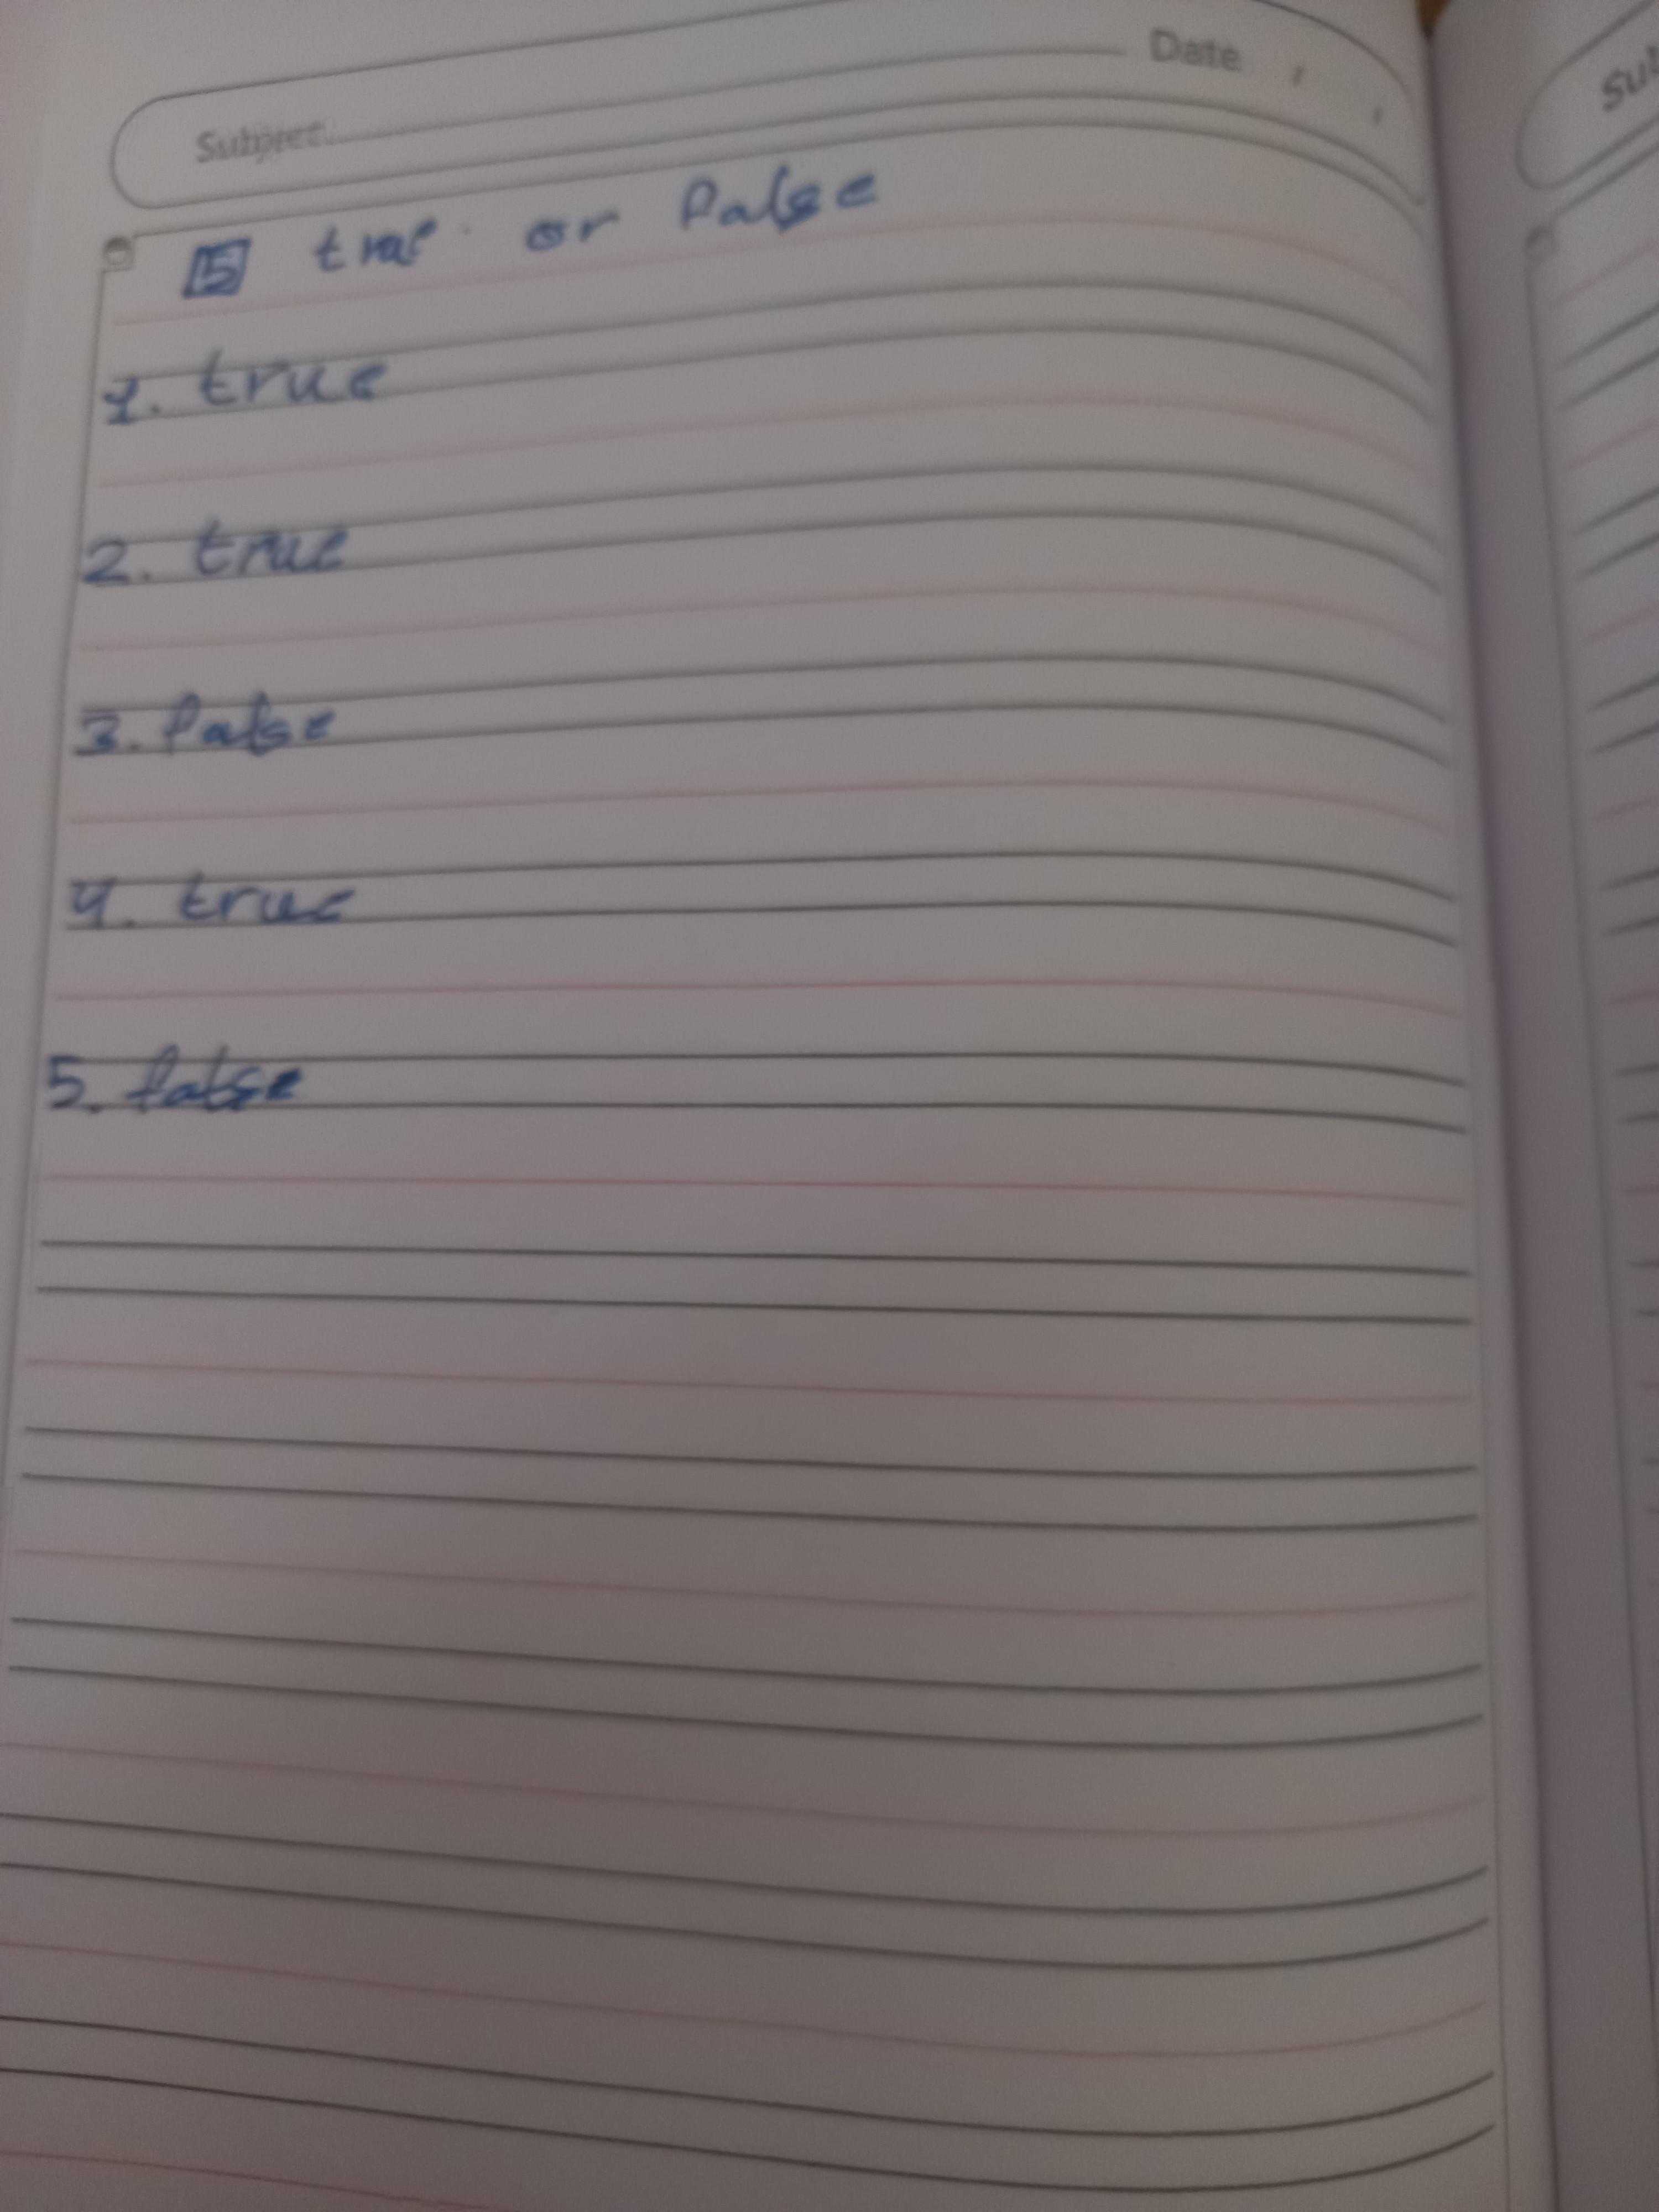 Subject: Date / /
5 true or false
1. true
2. true
3. false
4. true
5. false